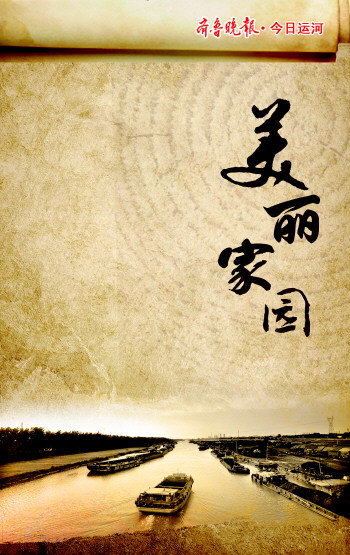 齐鲁晚报·今日运河
美丽家园